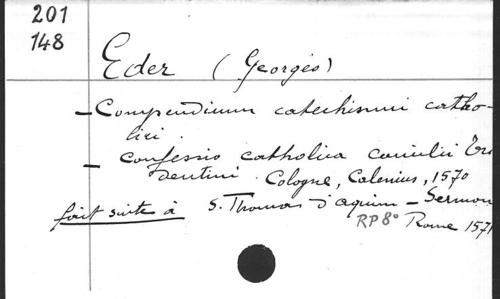 201
148
Eder (Georges)
- Compendium catechismi catho-
lici.
- Confessio catholica concilii Tri
dentini. Cologne, Calenius, 1570
fait suite à S. Thomas d'Aquin - Sermon
RP 8° Rome 1571